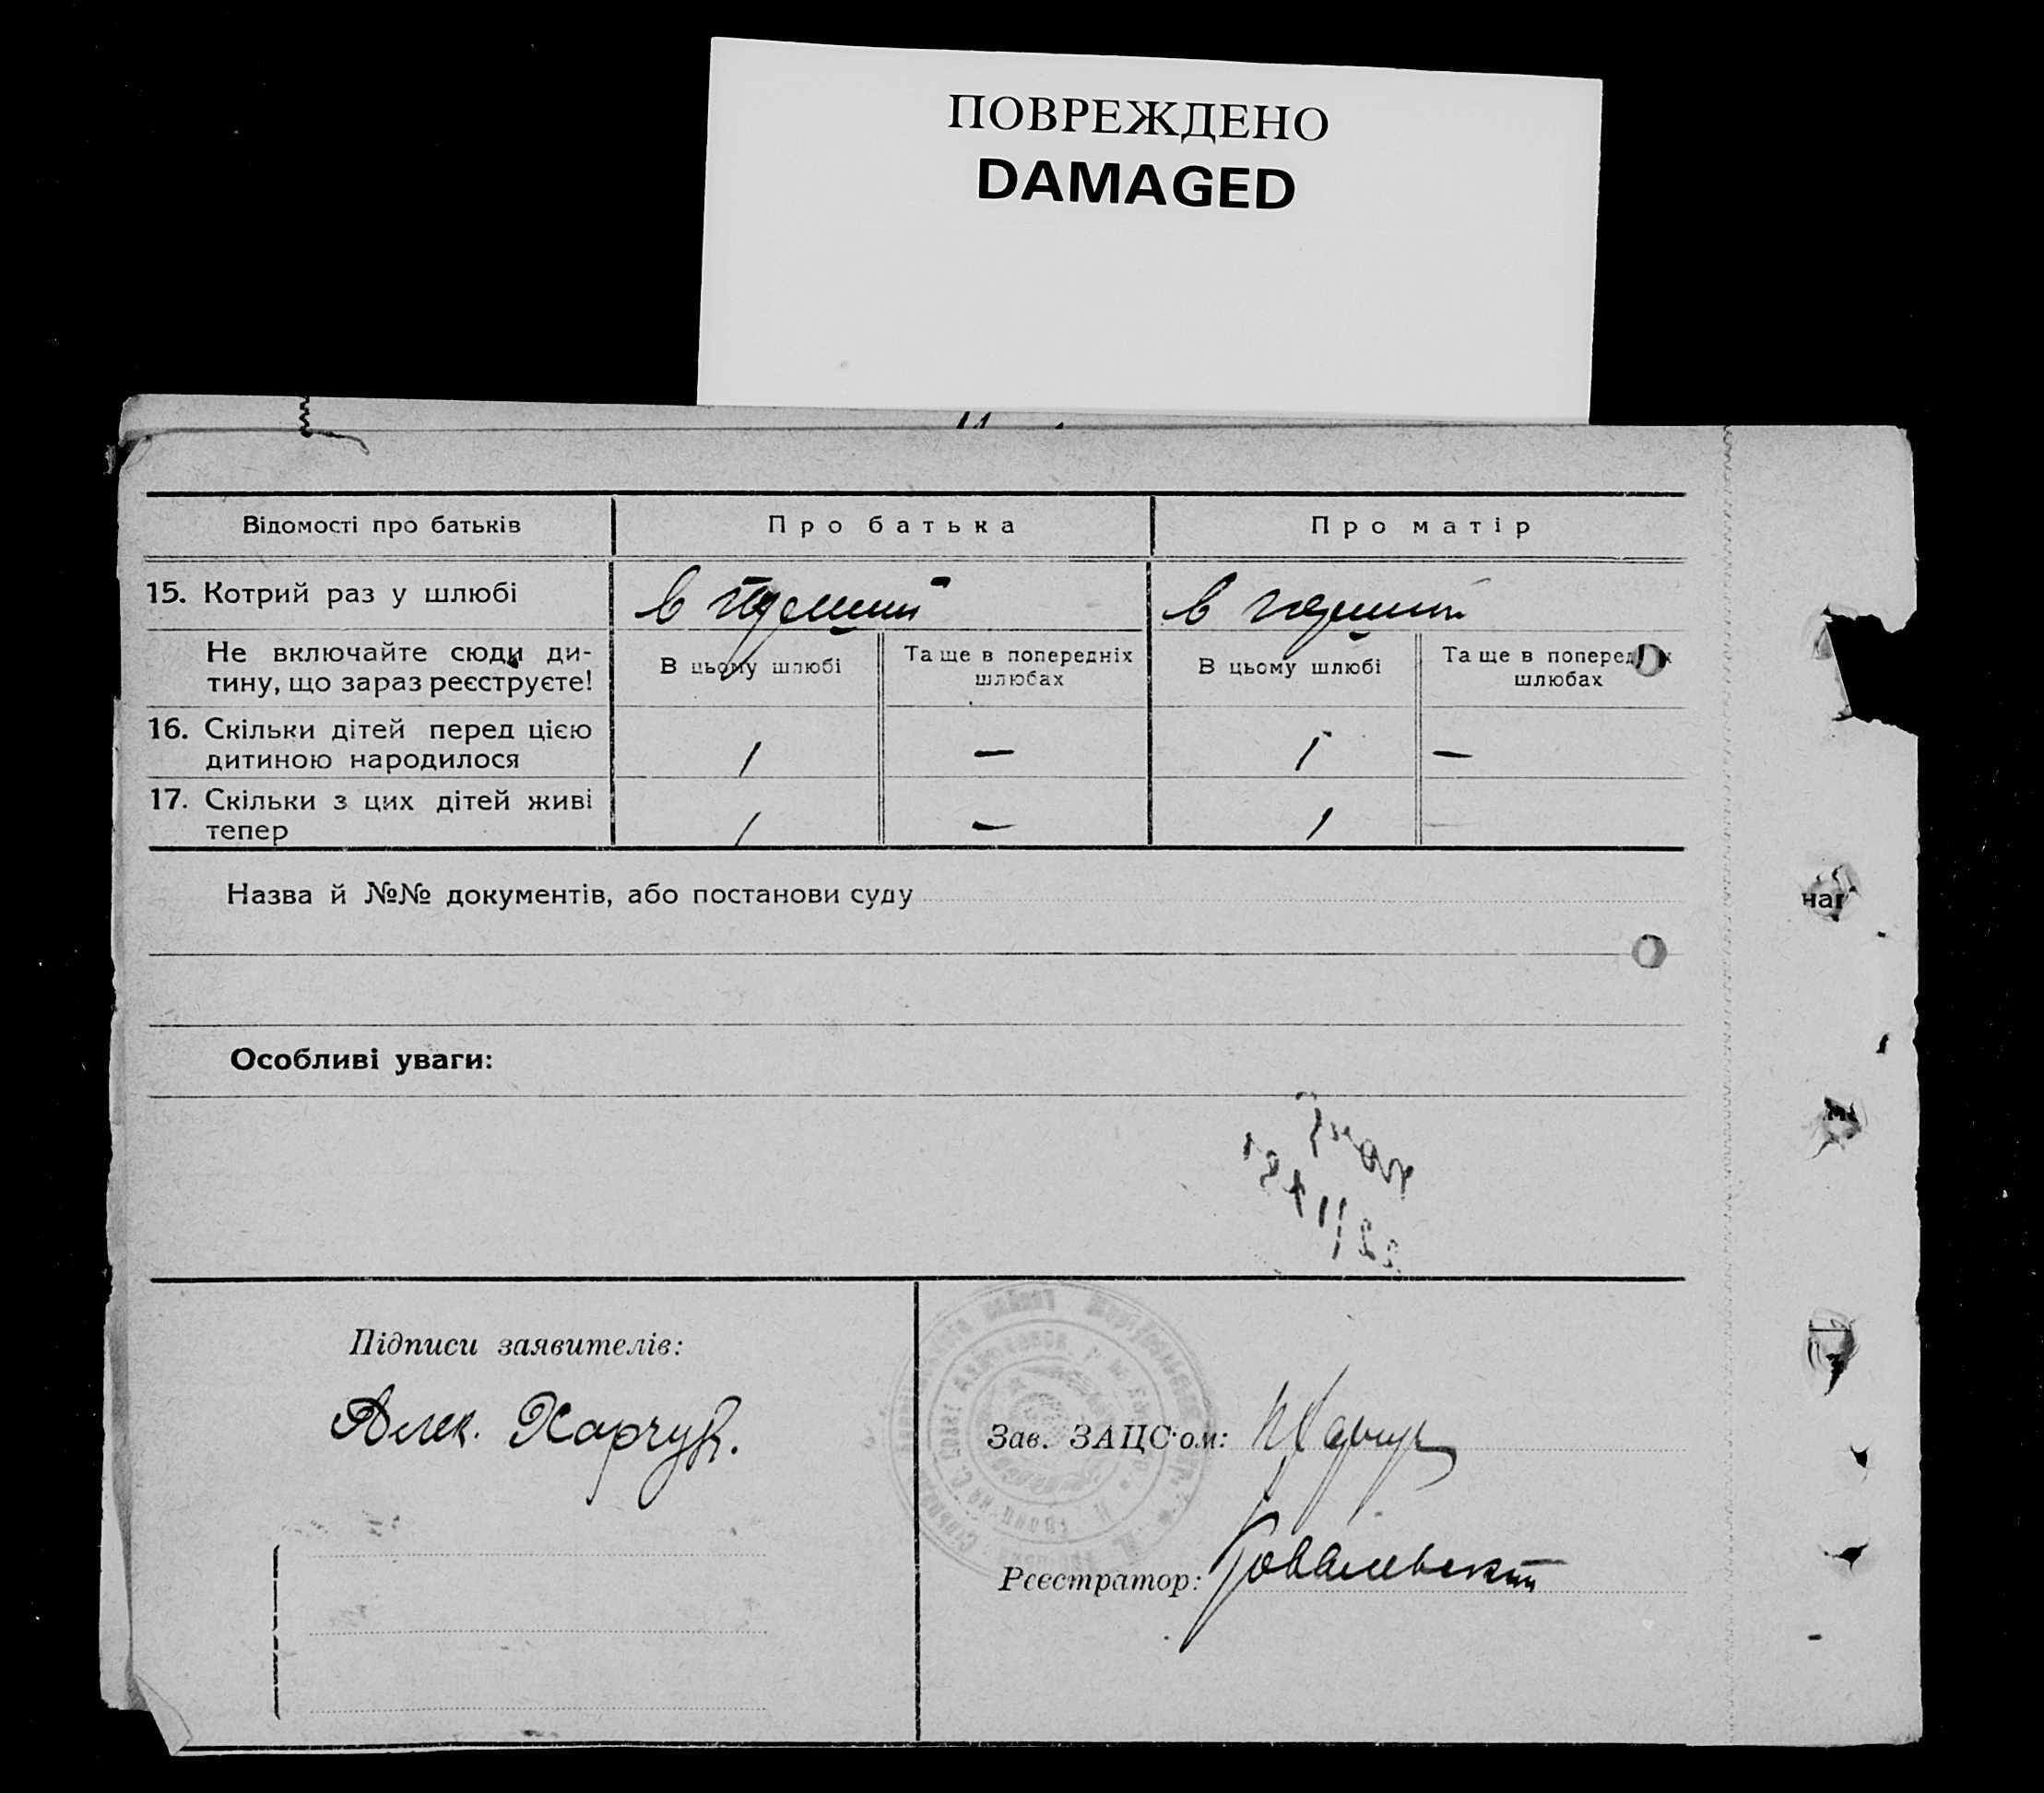 ПОВРЕЖДЕНО
DAMAGED
Відомості про батьків
Про батька
Про матір
15. Котрий раз у шлюбі
в
в
Не включайте сюди ди-
тину, що зараз реєструєте!
В цьому шлюбі
Та ще в попередніх
шлюбах
В цьому шлюбі
Та ще в
шлюбах
16. Скільки дітей перед цією
дитиною народилося
1
—
1
—
17. Скільки з цих дітей живі
тепер
1
—
1
—
Назва й №№ документів, або постанови суду
Особливі уваги:
Підписи заявителів:
Алек. Харчук.
Зав. ЗАЦС'ом:
Реєстратор: Ковалевский